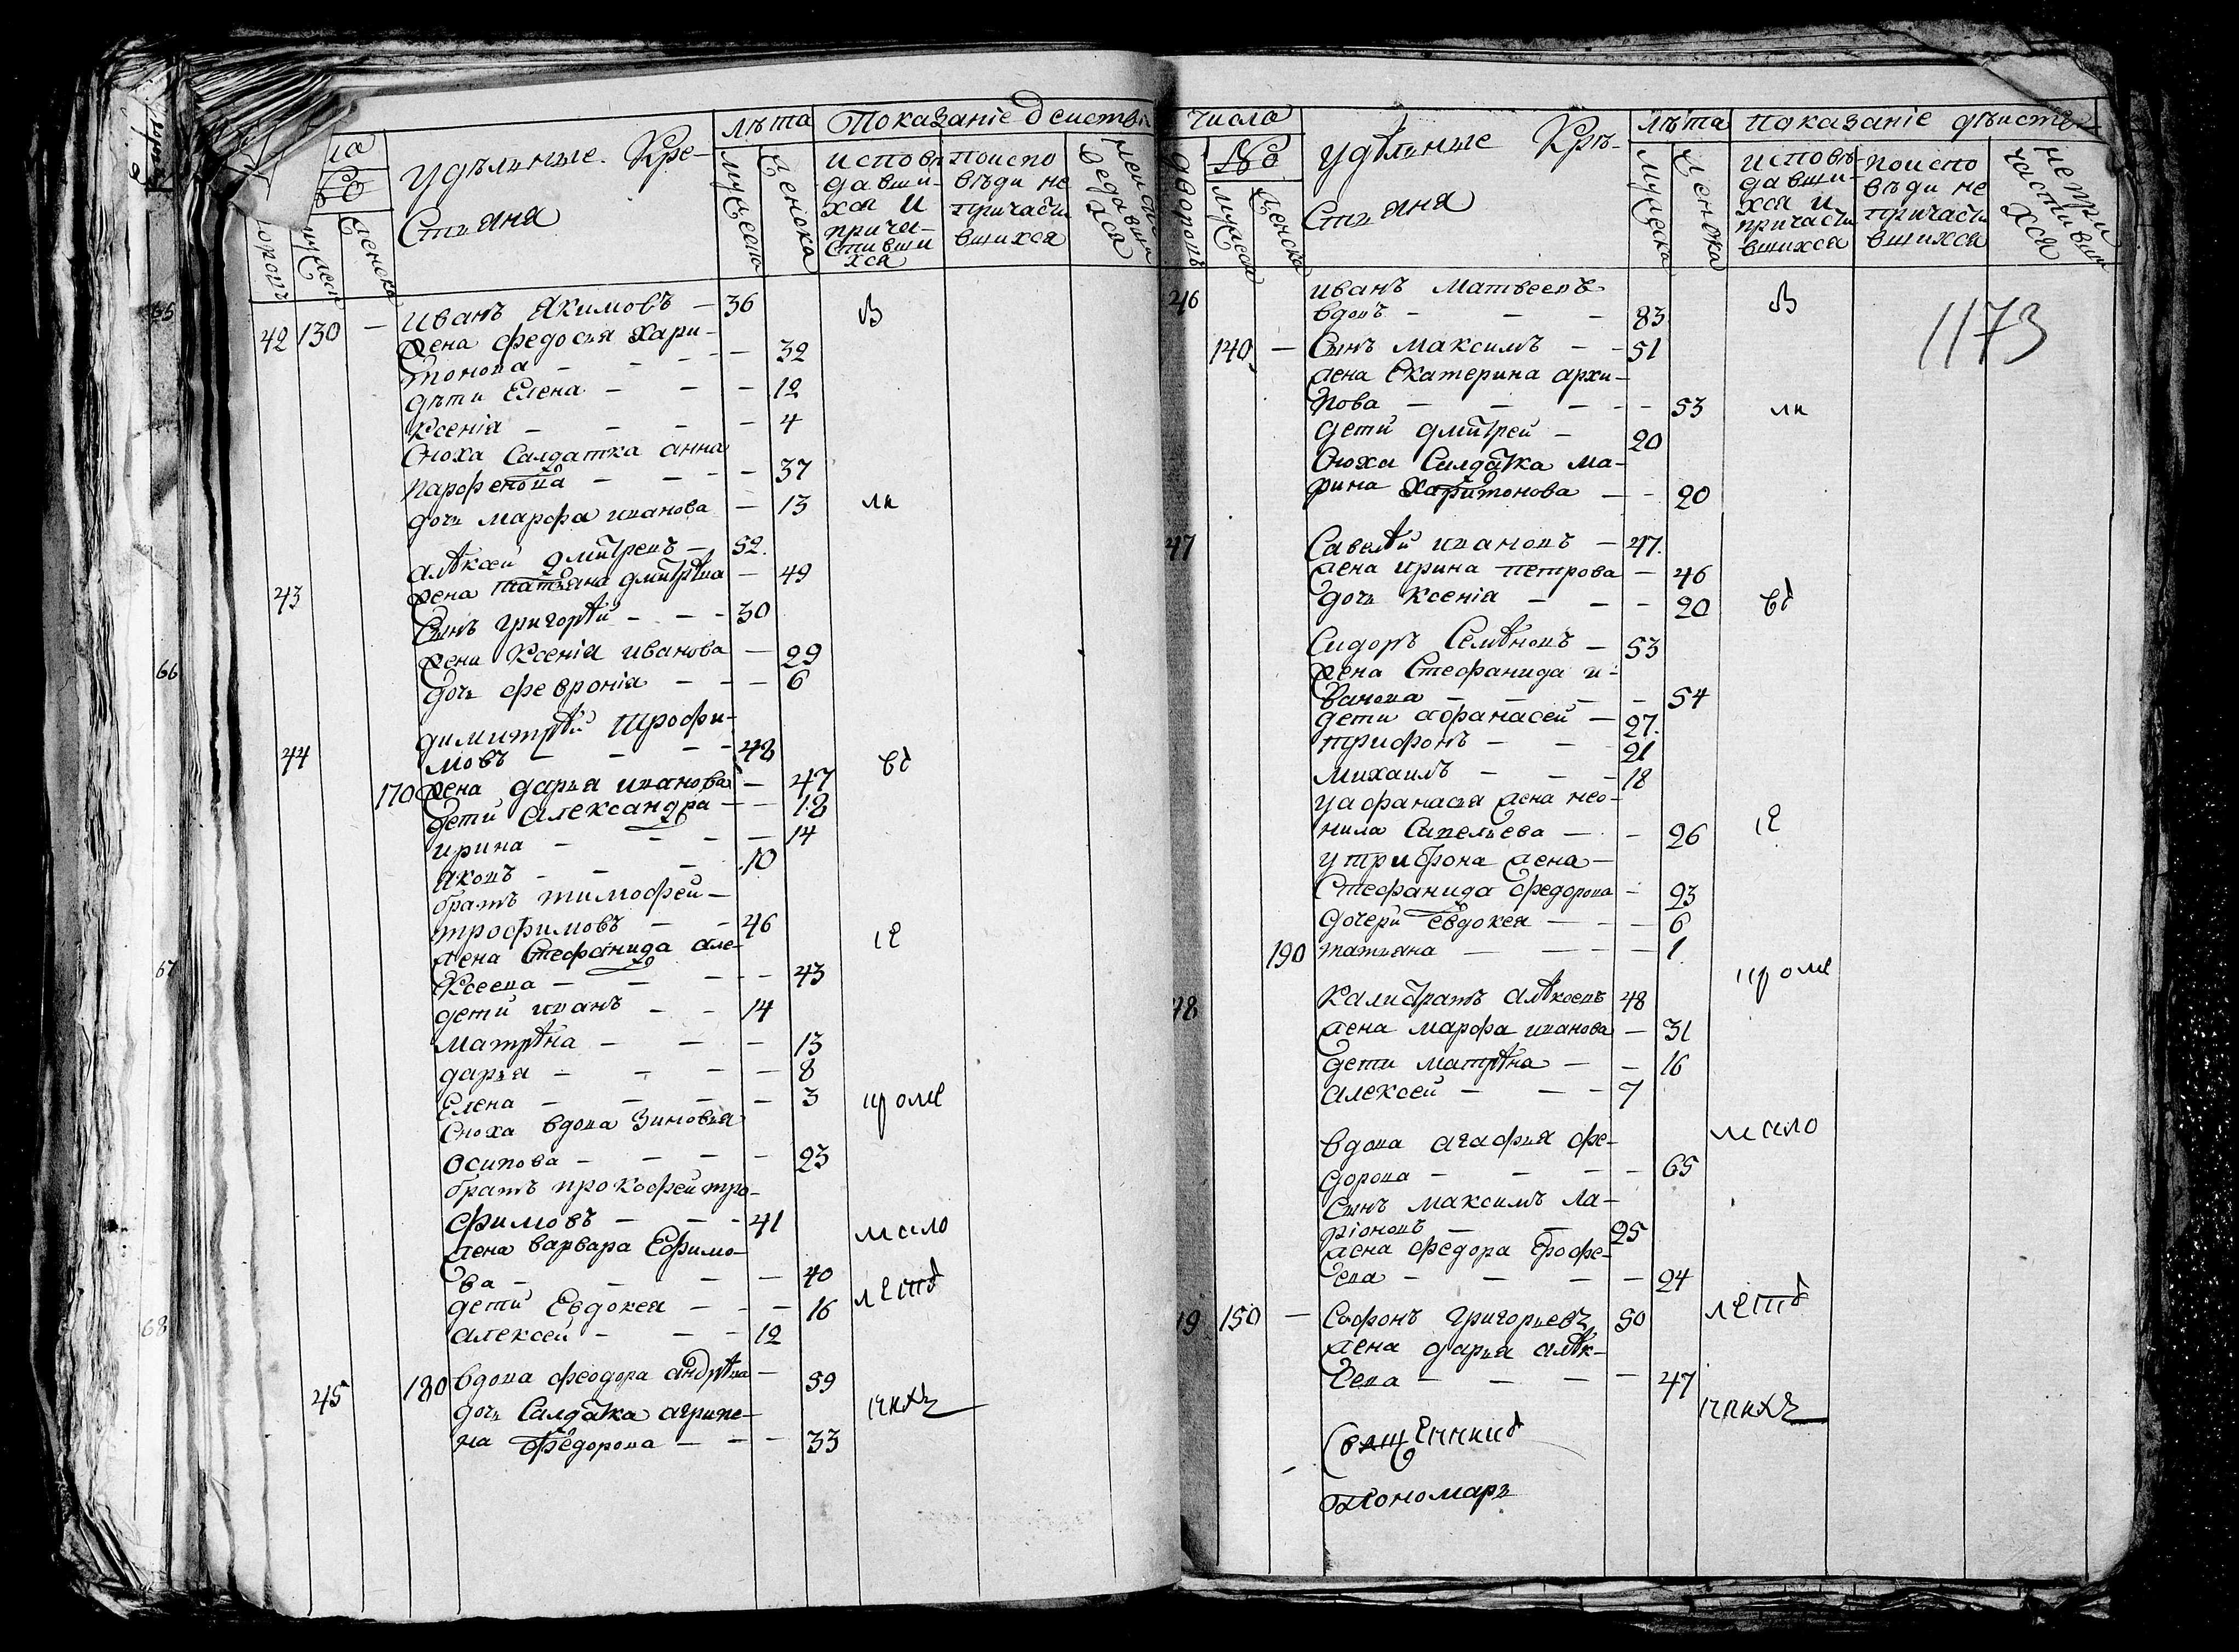 лѣта Показаніе
удѣльные Кре-
стьяня
мужеска женска
исповѣ
давши-
хся и
приче-
стивши
хся
поиспо
вѣди не
причасти
вшихся
42 130 — Иванъ Якимовъ — 36
жена федосья Хари-
тонова — 32
дѣти Елена — — — 12
Ксенія — — — 4
Сноха Салдатка анна
парфенова — — — 37
дочь марфа иванова — 13
43 алѣксей дмитревъ — 52.
жена татьяна дмитрѣва — 49
Сынъ григорѣй — — 30
жена Ксенія иванова — 29
дочь февронія — — — 6
44 димитрѣй трофи-
мовъ — — — 48
170 жена дарья иванова — 47
дети александра — — 18
ирина — — — — 14
яковъ — — — 10
братъ тимофей —
трофимовъ — — 46
жена Стефанида але-
ксеева — — — — 43
дети иванъ — — 14
матрѣна — — — 13
дарья — — — — 8
Елена — — — — 3
Сноха вдова Зиновья
осипова — — — — 23
братъ прокофей тро-
фимовъ — — — 41
жена варвара Ефимо-
ва — — — — 40
дети Евдокея — — — 16
алексей — — — 12
45 180 вдова феодора андрѣва — 59
дочь Салдатка агрипе-
на федорова — — — 33
В
ли
вс
ге
ме
мело
числа лѣта показаніе
дворовъ
мужеска женска
удѣльные Кре-
стьяня
мужеска женска
исповѣ-
давши-
хся и
причасти
вшихся
поиспо
вѣди не
причасти
вшихся
не при
частивши
хся
1173
46 иванъ матвеевъ
вдовъ — — — 83
140 — Сынъ максимъ — — 51
жена Екатерина архи-
пова — — — — 53
дети дмитрей — 20
Сноха Салдатка ма-
рина Харитонова — — 20
47 Савелѣй ивановъ — 47.
жена ирина петрова — 46
дочь ксенія — — — 20
Сидоръ Семѣновъ — 53
жена Стефанида и-
ванова — — — — 54
дети афанасей — 27.
трифонъ — — 21
михаилъ — — — 18
у афанасья жена нео-
нила Савельева — — 26
у трифона жена —
Стефанида федорова — 23
дочери евдокея — — — 6
190 татьяна — — — — 1.
48 Калистратъ алѣксевъ 48
жена марфа иванова — 31
дети матрѣна — — 16
алексей — — — 7
вдова агафья фе-
дорова — — — — 65
Сынъ максимъ ла-
ріоновъ — — 25
жена федора Ерофе-
ева — — — — 24
49 150 — Софонъ григорьевъ 50
жена дарья алѣк-
сева — — — — 47
Священникъ
Пономарь